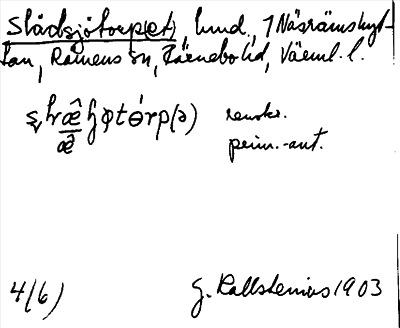 Slädsjötorp(et), lund., 1 Näsrämshyt-
tan, Rämens sn, Färnebo hd, Värml. l.
renskr.
prim.-ant.
4(6) G. Kallstenius 1903